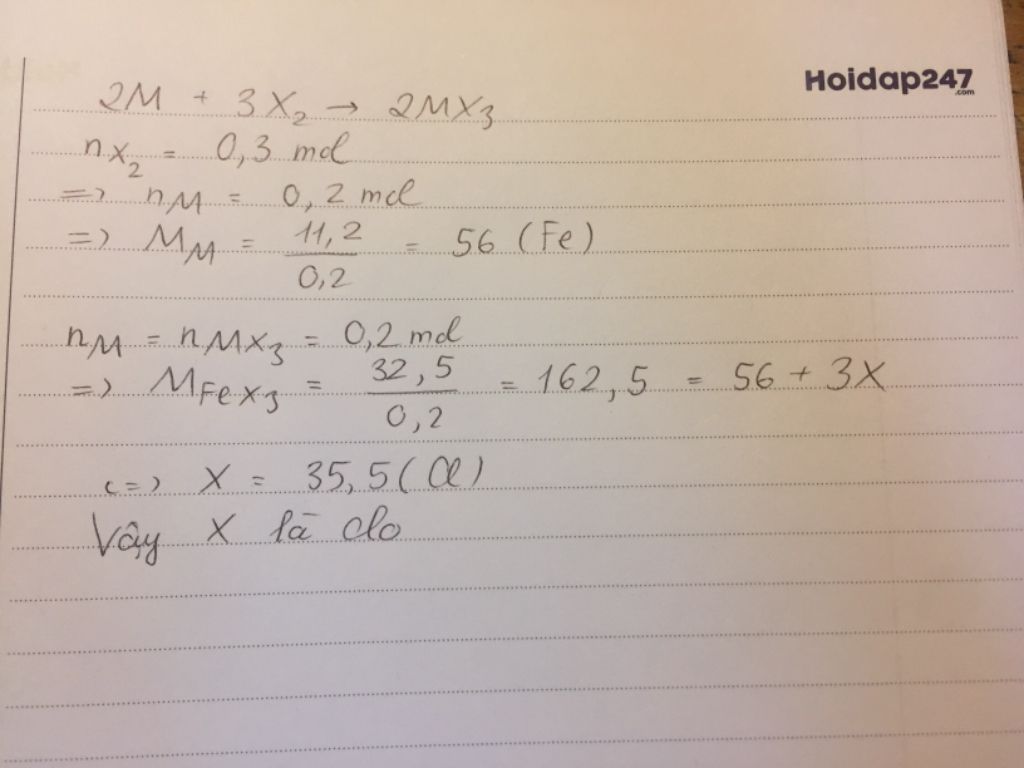 Hoidap247
.com
2M + 3X₂ → 2MX₃
nX₂ = 0,3 mol
=> nM = 0,2 mol
=> MM = 11,2 / 0,2 = 56 (Fe)
nM = nMX₃ = 0,2 mol
=> MFeX₃ = 32,5 / 0,2 = 162,5 = 56 + 3X
<=> X = 35,5 (Cl)
Vậy X là clo